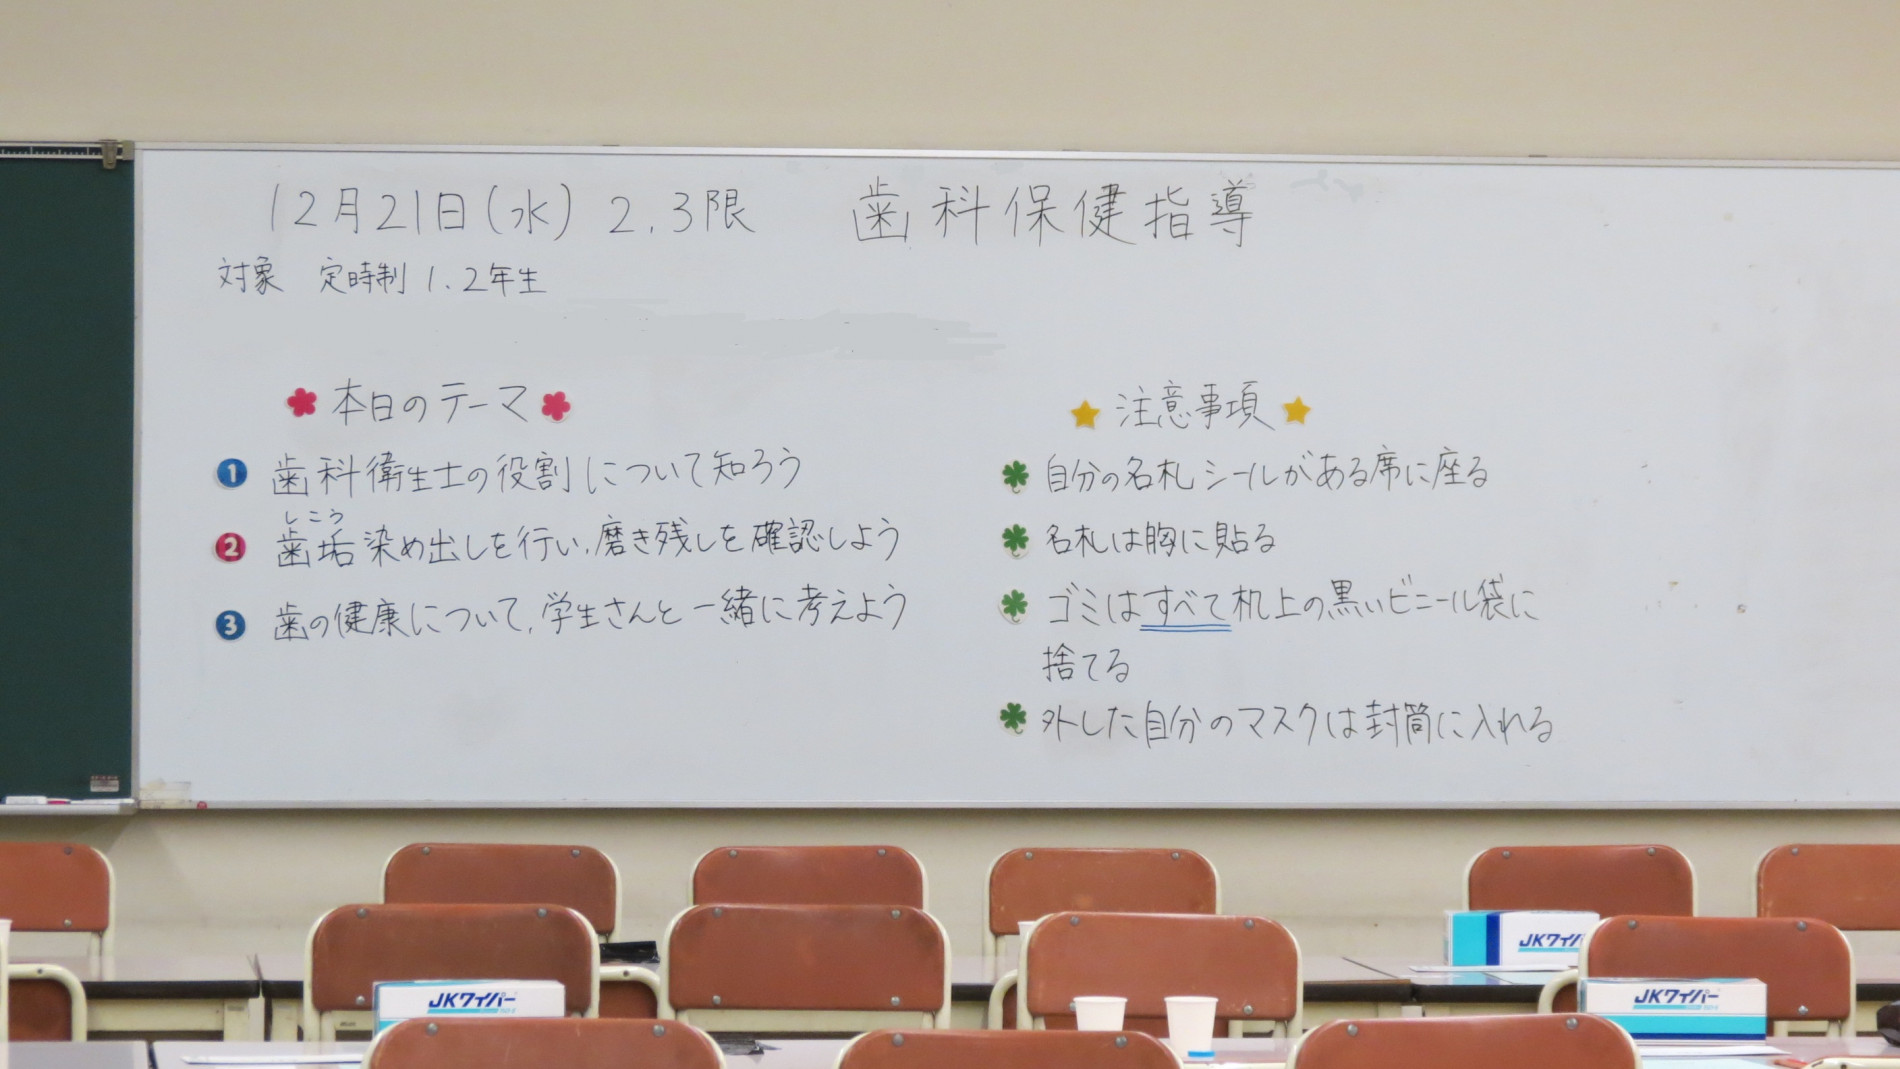 12月21日(水) 2.3限 歯科保健指導
対象 定時制1.2年生
本日のテーマ
1 歯科衛生士の役割について知ろう
しこう
2 歯垢染め出しを行い、磨き残しを確認しよう
3 歯の健康について、学生さんと一緒に考えよう
注意事項
自分の名札シールがある席に座る
名札は胸に貼る
ゴミはすべて机上の黒いビニール袋に
捨てる
外した自分のマスクは封筒に入れる
JKワイパー
JKワイパー
JKワイパー